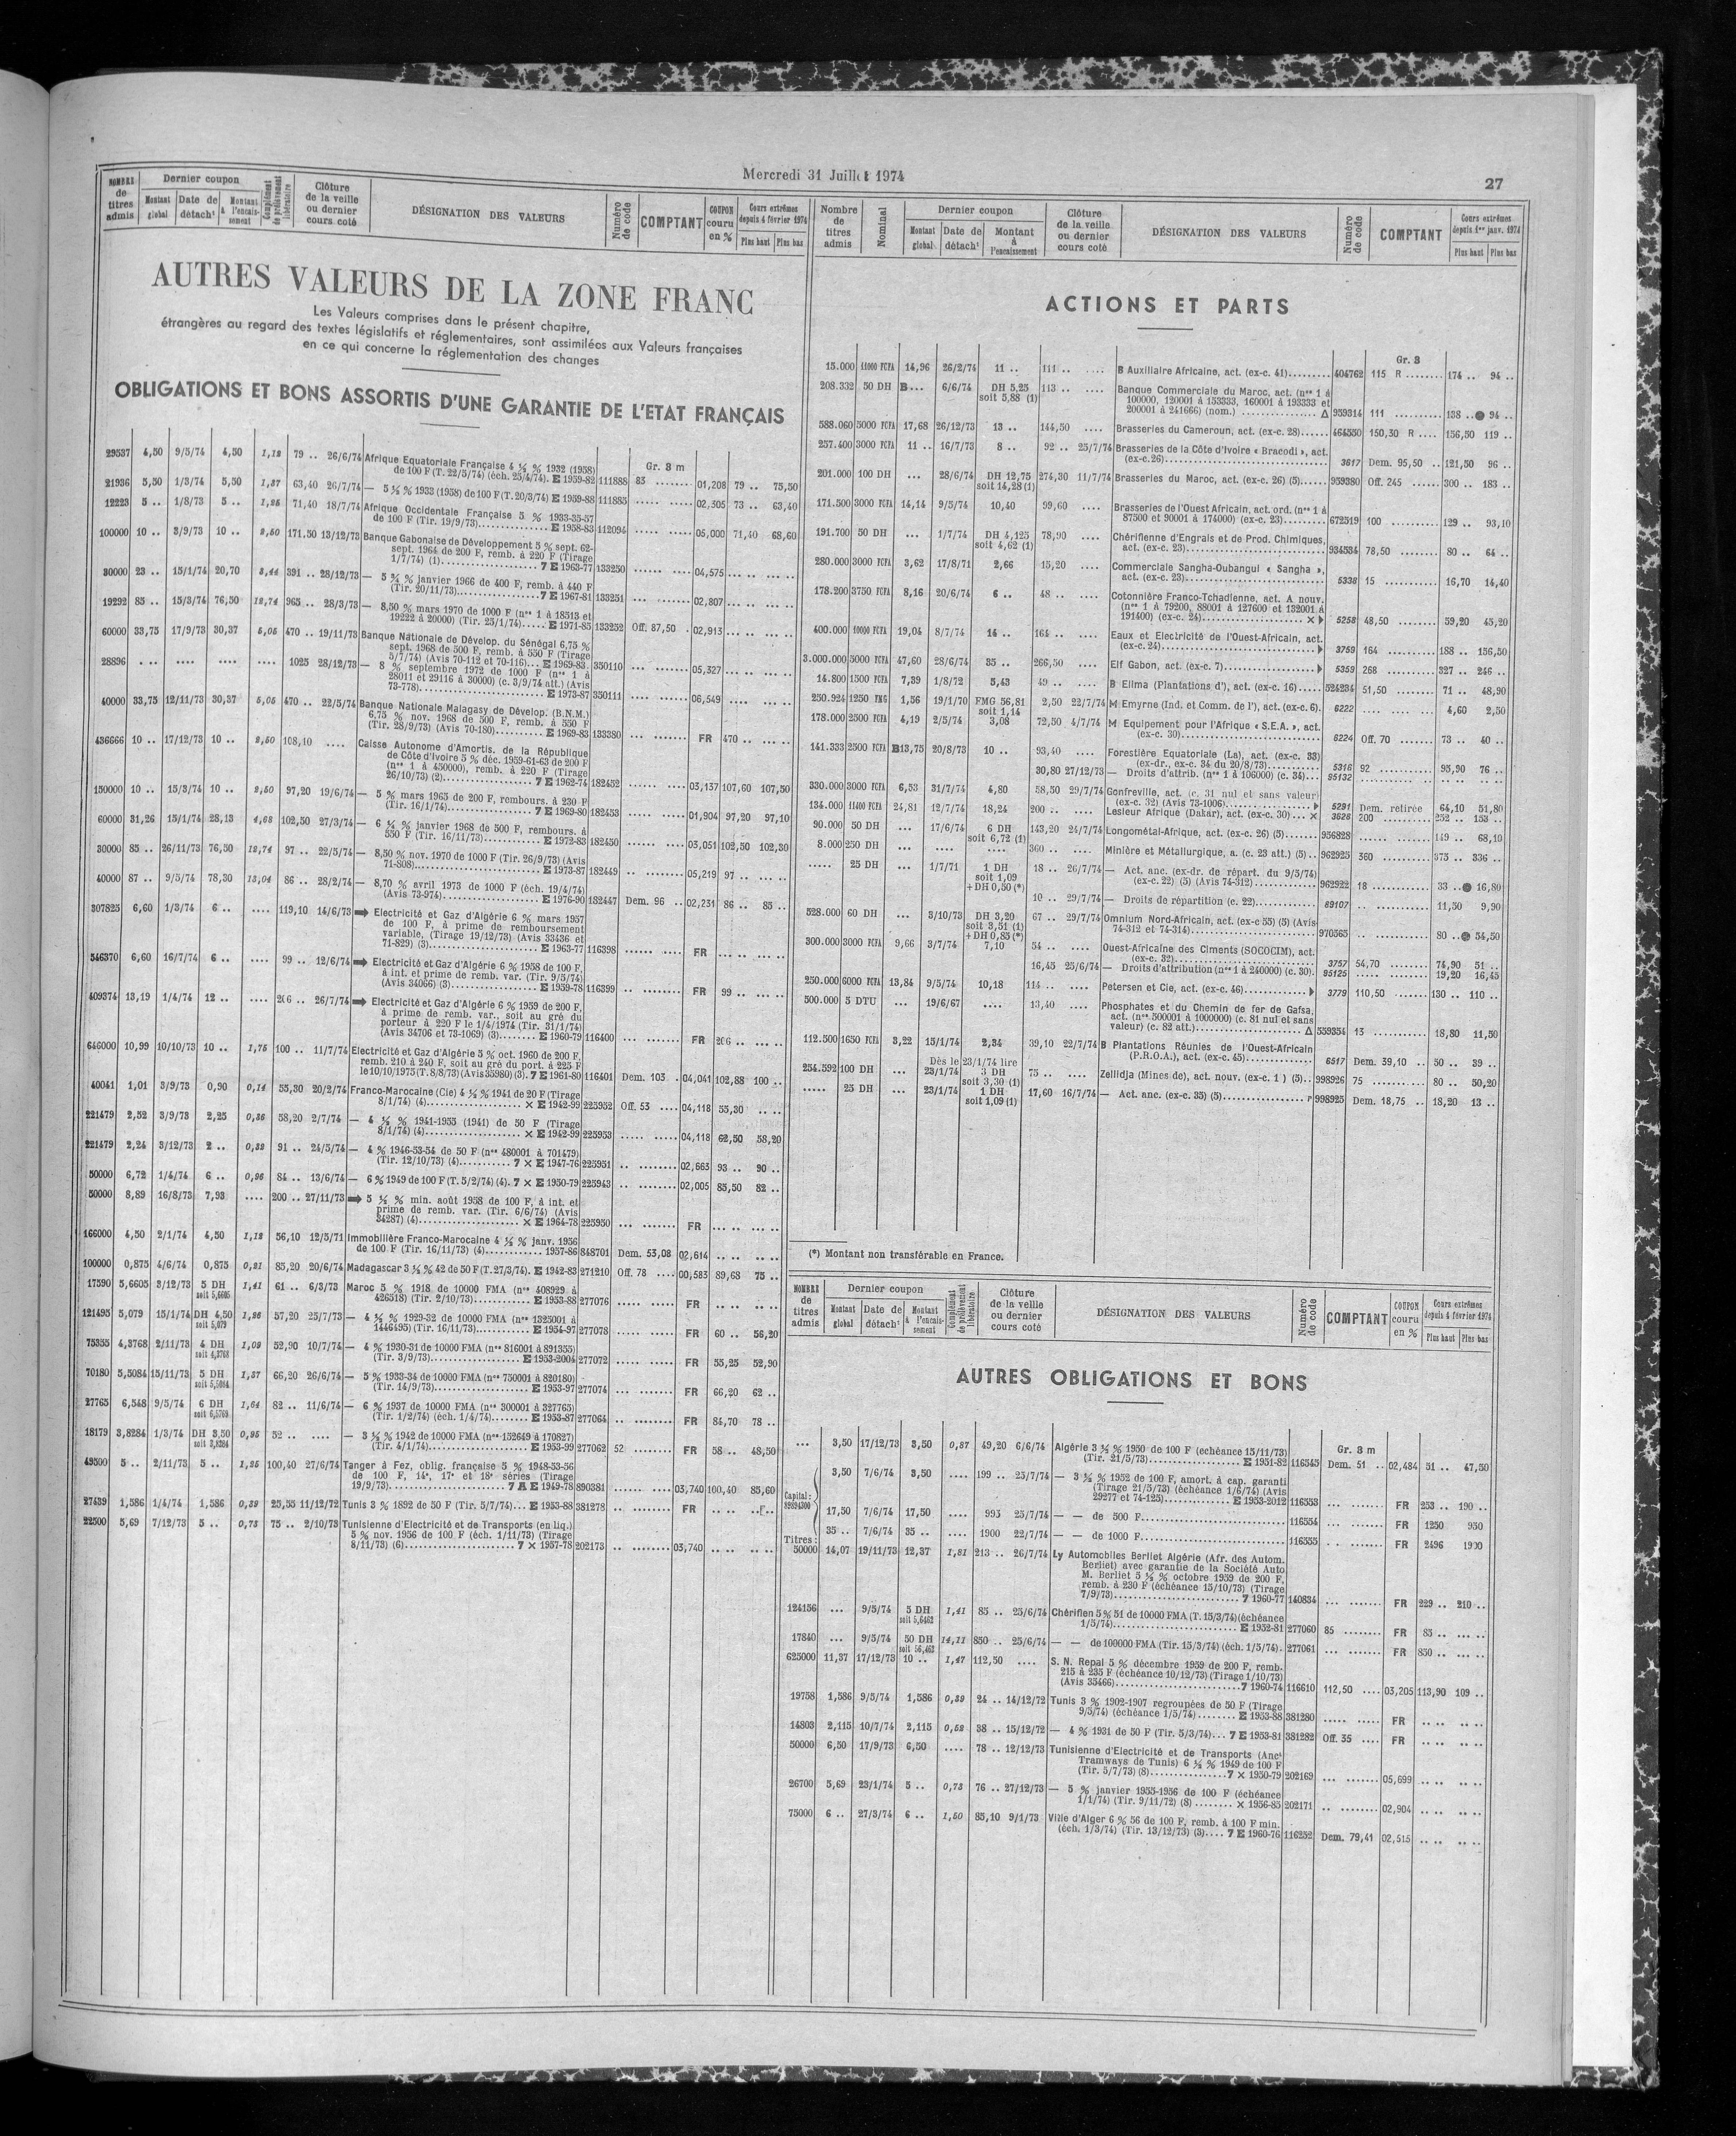 Mercredi 31 Juillet 1974
27
NOMBRE de titres admis
Dernier coupon
Montant global
Date de détacht
Montant à l'encaissement
Complément de prélèvement libératoire
Clôture de la veille ou dernier cours coté
DÉSIGNATION DES VALEURS
Numéro de code
COMPTANT
COUPON couru en %
Cours extrêmes depuis 4 février 1974
Plus haut
Plus bas
AUTRES VALEURS DE LA ZONE FRANC
Les Valeurs comprises dans le présent chapitre,
étrangères au regard des textes législatifs et réglementaires, sont assimilées aux Valeurs françaises
en ce qui concerne la réglementation des changes
OBLIGATIONS ET BONS ASSORTIS D'UNE GARANTIE DE L'ETAT FRANÇAIS
Gr. 8 m
29537 4,50 9/5/74 4,50 1,12 79 .. 26/6/74 Afrique Equatoriale Française 4 ½ % 1932 (1958)
de 100 F (T. 22/5/74) (éch. 25/4/74). E 1959-82 111888 85 ........ 01,208 79 .. 75,50
21936 5,50 1/3/74 5,50 1,37 63,40 26/7/74 — 5 ½ % 1933 (1958) de 100 F (T. 20/3/74) E 1959-88 111885 ..... ..... 02,305 73 .. 63,40
12223 5 .. 1/8/73 5 .. 1,25 71,40 18/7/74 Afrique Occidentale Française 5 % 1933-35-57
de 100 F (Tir. 19/9/73)............ E 1958-83 112094 ..... ..... 05,000 71,40 68,60
100000 10 .. 3/9/73 10 .. 2,50 171.50 13/12/73 Banque Gabonaise de Développement 5 % sept. 62-
sept. 1964 de 200 F, remb. à 220 F (Tirage
1/7/74) (1)................ 7 E 1963-77 133250 ..... ..... 04,575 ... .. ... ..
30000 23 .. 15/1/74 20,70 3,44 391 .. 28/12/73 — 5 ¾ % janvier 1966 de 400 F, remb. à 440 F
(Tir. 20/11/73)................ 7 E 1967-81 133251 ... ........ 02,807 ... .. ... ..
19292 85 .. 15/3/74 76,50 12,74 965 .. 28/3/73 — 8,50 % mars 1970 de 1000 F (nos 1 à 18513 et
19222 à 20000) (Tir. 25/1/74)..... E 1971-85 133252 Off. 87,50 . 02,913 ... .. ... ..
60000 33,75 17/9/73 30,37 5,05 470 .. 19/11/73 Banque Nationale de Dévelop. du Sénégal 6,75 %
sept. 1968 de 500 F, remb. à 550 F (Tirage
5/7/74) (Avis 70-112 et 70-116)... E 1969-83 350110 ... ........ 05,327 ... .. ... ..
28896 . .. .... .... .... 1025 28/12/73 — 8 % septembre 1972 de 1000 F (nos 1 à
28011 et 29116 à 30000) (c. 3/9/74 att.) (Avis
73-778)................ E 1973-87 350111 .... ..... 06,549 .... .. ... ..
40000 33,75 12/11/73 30,37 5,05 470 .. 22/5/74 Banque Nationale Malagasy de Dévelop. (B.N.M.)
6,75 % nov. 1968 de 500 F, remb. à 550 F
(Tir. 28/9/73) (Avis 70-180).......... E 1969-83 133380 ... ........ FR 470 .. ... ..
436666 10 .. 17/12/73 10 .. 2,50 108,10 .... Caisse Autonome d'Amortis. de la République
de Côte d'Ivoire 5 % déc. 1959-61-63 de 200 F
(nos 1 à 450000), remb. à 220 F (Tirage
26/10/73) (2)................ 7 E 1962-74 182452 ...... .... 03,137 107,60 107,50
150000 10 .. 15/3/74 10 .. 2,50 97,20 19/6/74 — 5 % mars 1965 de 200 F, rembours. à 230 F
(Tir. 16/1/74)................ 7 E 1969-80 182453 ..... ..... 01,904 97,20 97,10
60000 31,26 15/1/74 28,13 4,68 102,50 27/3/74 — 6 ¼ % janvier 1968 de 500 F, rembours. à
550 F (Tir. 16/11/73)............ E 1972-83 182450 ...... .... 03,051 102,50 102,30
30000 85 .. 26/11/73 76,50 12,74 97 .. 22/5/74 — 8,50 % nov. 1970 de 1000 F (Tir. 26/9/73) (Avis
71-808)................ E 1973-87 182449 .. ........ 05,219 97 .. ... ..
40000 87 .. 9/5/74 78,30 13,04 86 .. 28/2/74 — 8,70 % avril 1973 de 1000 F (éch. 19/4/74)
(Avis 73-974)................ E 1976-90 182447 Dem. 96 .. 02,231 86 .. 85 ..
307825 6,60 1/3/74 6 .. .... 119,10 14/6/73 ➡ Electricité et Gaz d'Algérie 6 % mars 1957
de 100 F, à prime de remboursement
variable. (Tirage 19/12/73) (Avis 33436 et
71-829) (3)................ E 1963-77 116398 ...... .... FR ... .. ... ..
546370 6,60 16/7/74 6 .. .... 99 .. 12/6/74 ➡ Electricité et Gaz d'Algérie 6 % 1958 de 100 F,
à int. et prime de remb. var. (Tir. 9/5/74)
(Avis 34066) (3)................ E 1959-78 116399 .. ........ FR 99 .. ... ..
409374 13,19 1/4/74 12 .. .... 206 .. 26/7/74 ➡ Electricité et Gaz d'Algérie 6 % 1959 de 200 F,
à prime de remb. var., soit au gré du
porteur à 220 F le 1/4/1974 (Tir. 31/1/74)
(Avis 34706 et 73-1069) (3)........ E 1960-79 116400 ... ....... FR 206 .. ... ..
646000 10,99 10/10/73 10 .. 1,75 100 .. 11/7/74 Electricité et Gaz d'Algérie 5 % oct. 1960 de 200 F,
remb. 210 à 240 F, soit au gré du port. à 225 F
le 10/10/1975 (T. 8/8/73) (Avis 35980) (3). 7 E 1961-80 116401 Dem. 103 . 04,041 102,88 100 ..
40041 1,01 3/9/73 0,90 0,14 55,30 20/2/74 Franco-Marocaine (Cie) 4 ½ % 1941 de 20 F (Tirage
8/1/74) (4)................ × E 1942-99 225952 Off. 53 .... 04,118 55,30 .. ..
221479 2,52 3/9/73 2,25 0,36 58,20 2/7/74 — 4 ½ % 1941-1955 (1941) de 50 F (Tirage
8/1/74) (4)................ × E 1942-99 225953 ..... ..... 04,118 62,50 58,20
221479 2,24 3/12/73 2 .. 0,32 91 .. 24/5/74 — 4 % 1946-53-54 de 50 F (nos 480001 à 701479)
(Tir. 12/10/73) (4).......... 7 × E 1947-76 225951 .. ........ 02,663 93 .. 90 ..
50000 6,72 1/4/74 6 .. 0,96 84 .. 13/6/74 — 6 % 1949 de 100 F (T. 5/2/74) (4). 7 × E 1950-79 225943 .. ........ 02,005 85,50 82 ..
50000 8,89 16/8/73 7,93 .... 200 .. 27/11/73 ➡ 5 ½ % min. août 1958 de 100 F, à int. et
prime de remb. var. (Tir. 6/6/74) (Avis
34287) (4)................ × E 1964-78 225950 ... ....... FR ... .. ... ..
166000 4,50 2/1/74 4,50 1,12 56,10 12/5/71 Immobilière Franco-Marocaine 4 ½ % janv. 1956
de 100 F (Tir. 16/11/73) (4)............ 1957-86 848701 Dem. 53,08 02,614 .. .. .. ..
100000 0,875 4/6/74 0,875 0,21 85,20 20/6/74 Madagascar 3 ½ % 42 de 50 F (T. 27/3/74). E 1942-83 271210 Off. 78 .... 00,583 89,68 75 ..
17590 5,6605 3/12/73 5 DH soit 5,6605 1,41 61 .. 6/3/73 Maroc 5 % 1918 de 10000 FMA (nos 408929 à
426518) (Tir. 2/10/73)............ E 1953-88 277076 ..... ..... FR .. .. .. ..
121495 5,079 15/1/74 DH 4,50 soit 5,079 1,26 57,20 25/7/73 — 4 ½ % 1929-32 de 10000 FMA (nos 1325001 à
1446495) (Tir. 16/11/73)............ E 1954-97 277078 ...... ..... FR 60 .. 56,20
75355 4,3768 2/11/73 4 DH soit 4,3768 1,09 52,90 10/7/74 — 4 % 1930-31 de 10000 FMA (nos 816001 à 891355)
(Tir. 3/9/73)................ E 1953-2004 277072 ..... ..... FR 55,25 52,90
70180 5,5084 15/11/73 5 DH soit 5,5084 1,37 66,20 26/6/74 — 5 % 1933-34 de 10000 FMA (nos 750001 à 820180)
(Tir. 14/9/73)................ E 1953-97 277074 ... ........ FR 66,20 62 ..
27765 6,548 9/5/74 6 DH 1,64 82 .. 11/6/74 — 6 % 1937 de 10000 FMA (nos 300001 à 327765)
(Tir. 1/2/74) (éch. 1/4/74)........ E 1953-87 277064 .. ........ FR 84,70 78 ..
18179 3,8284 1/3/74 DH 3,50 soit 3,8284 0,95 52 .. .... — 3 ½ % 1942 de 10000 FMA (nos 152649 à 170827)
(Tir. 4/1/74)................ E 1953-99 277062 52 ........ FR 58 .. 48,50
49500 5 .. 2/11/73 5 .. 1,25 100,40 27/6/74 Tanger à Fez, oblig. française 5 % 1948-53-56
de 100 F, 14e, 17e et 18e séries (Tirage
19/9/73)................ 7 A E 1949-78 890381 ...... ..... 03,740 100,40 85,60
27439 1,586 1/4/74 1,586 0,39 25,55 11/12/72 Tunis 3 % 1892 de 50 F (Tir. 5/7/74)... E 1953-88 381278 .. ........ FR .. .. .. ..
22500 5,69 7/12/73 5 .. 0,73 75 .. 2/10/73 Tunisienne d'Electricité et de Transports (en liq.)
5 % nov. 1956 de 100 F (éch. 1/11/73) (Tirage
8/11/73) (6)................ 7 × 1957-78 202173 .. ........ 03,740 ... .. .. ..
Nombre de titres admis
Nominal
Dernier coupon
Montant global
Date de détacht
Montant à l'encaissement
Clôture de la veille ou dernier cours coté
DÉSIGNATION DES VALEURS
Numéro de code
COMPTANT
Cours extrêmes depuis 1er janv. 1974
Plus haut
Plus bas
ACTIONS ET PARTS
Gr. 8
15.000 11000 FCFA 14,96 26/2/74 11 .. 111 .. .... B Auxiliaire Africaine, act. (ex-c. 41)......... 404762 115 R ........ 174 .. 94 ..
208.332 50 DH B... 6/6/74 DH 5,25 soit 5,88 (1) 113 .. .... Banque Commerciale du Maroc, act. (nos 1 à
100000, 120001 à 133333, 160001 à 193333 et
200001 à 241666) (nom.) ................ Δ 959314 111 .......... 138 .. ● 94 ..
588.060 5000 FCFA 17,68 26/12/73 13 .. 144,50 .... Brasseries du Cameroun, act. (ex-c. 28)...... 464550 150,30 R .... 156,50 119 ..
257.400 3000 FCFA 11 .. 16/7/73 8 .. 92 .. 25/7/74 Brasseries de la Côte d'Ivoire « Bracodi », act.
(ex-c.26)................ 3617 Dem. 95,50 .. 121,50 96 ..
201.000 100 DH ... 28/6/74 DH 12,75 soit 14,28 (1) 274,30 11/7/74 Brasseries du Maroc, act. (ex-c. 26) (5)..... 959380 Off. 245 ...... 300 .. 183 ..
171.500 3000 FCFA 14,14 9/5/74 10,40 99,60 .... Brasseries de l'Ouest Africain, act. ord. (nos 1 à
87500 et 90001 à 174000) (ex-c. 23)........ 672519 100 .......... 129 .. 93,10
191.700 50 DH ... 1/7/74 DH 4,125 soit 4,62 (1) 78,90 .... Chérifienne d'Engrais et de Prod. Chimiques,
act. (ex-c. 23)................ 934534 78,50 ........ 80 .. 64 ..
280.000 3000 FCFA 3,62 17/8/71 2,66 15,20 .... Commerciale Sangha-Oubangui « Sangha »,
act. (ex-c. 23)................ 5338 15 .......... 16,70 14,40
178.200 3750 FCFA 8,16 20/6/74 6 .. 48 .. .... Cotonnière Franco-Tchadienne, act. A nouv.
(nos 1 à 79200, 88001 à 127600 et 132001 à
191400) (ex-c. 24)................ × ▶ 5258 48,50 ........ 59,20 45,20
400.000 10000 FCFA 19,04 8/7/74 14 .. 164 .. .... Eaux et Electricité de l'Ouest-Africain, act.
(ex-c.24)................ ▶ 3759 164 .......... 188 .. 156,50
3.000.000 5000 FCFA 47,60 28/6/74 35 .. 266,50 .... Elf Gabon, act. (ex-c. 7)................ ▶ 5359 268 .......... 327 .. 246 ..
14.800 1500 FCFA 7,39 1/8/72 5,43 49 .. .... B Elima (Plantations d'), act. (ex-c. 16)..... 524234 51,50 ........ 71 .. 48,90
250.924 1250 FMG 1,56 19/1/70 FMG 56,81 soit 1,14 2,50 22/7/74 M Emyrne (Ind. et Comm. de l'), act. (ex-c. 6). 6222 .... .... .. 4,60 2,50
178.000 2500 FCFA 4,19 2/5/74 3,08 72,50 4/7/74 M Equipement pour l'Afrique « S.E.A. », act.
(ex-c. 30)................ 6224 Off. 70 ....... 73 .. 40 ..
141.333 2500 FCFA B13,75 20/8/73 10 .. 93,40 .... Forestière Equatoriale (La), act. (ex-c. 33)
(ex-dr., ex-c. 34 du 20/8/73)............ 5316 92 .......... 95,90 76 ..
30,80 27/12/73 — Droits d'attrib. (nos 1 à 106000) (c. 34)... 95132 .. .......... .. .. .. ..
330.000 3000 FCFA 6,53 31/7/74 4,80 58,50 29/7/74 Gonfreville, act. (c. 31 nul et sans valeur)
(ex-c. 32) (Avis 73-1006)................ ▶ 5291 Dem. retirée 64,10 51,80
134.000 11400 FCFA 24,81 12/7/74 18,24 200 .. .... Lesieur Afrique (Dakar), act. (ex-c. 30)... × 3626 200 .......... 252 .. 153 ..
90.000 50 DH ... 17/6/74 6 DH soit 6,72 (1) 143,20 24/7/74 Longométal-Afrique, act. (ex-c. 26) (5)....... 956828 ...... ...... 149 .. 68,10
8.000 250 DH ... .... .... 360 .. .... Minière et Métallurgique, a. (c. 23 att.) (5).. 962925 360 .......... 375 .. 336 ..
..... 25 DH ... 1/7/71 1 DH soit 1,09 + DH 0,50 (*) 18 .. 26/7/74 — Act. anc. (ex-dr. de répart. du 9/5/74)
(ex-c. 22) (5) (Avis 74-312)............ 962922 18 .......... 33 .. ● 16,80
10 .. 29/7/74 — Droits de répartition (c. 22)............ 89107 .. .......... 11,50 9,90
528.000 60 DH ... 3/10/73 DH 3,20 soit 3,51 (1) + DH 0,85 (*) 67 .. 29/7/74 Omnium Nord-Africain, act. (ex-c 55) (5) (Avis
74-312 et 74-314)................ 970565 .. .......... 80 .. ● 54,50
300.000 3000 FCFA 9,66 3/7/74 7,10 54 .. .... Ouest-Africaine des Ciments (SOCOCIM), act.
(ex-c. 32)................ 3757 54,70 ........ 74,90 51 ..
16,45 25/6/74 — Droits d'attribution (nos 1 à 240000) (c. 30). 95125 ..... ........ 19,20 16,45
250.000 6000 FCFA 13,84 9/5/74 10,18 114 .. .... Petersen et Cie, act. (ex-c. 46)............ ▶ 3779 110,50 ....... 130 .. 110 ..
500.000 5 DTU ... 19/6/67 .... 13,40 .... Phosphates et du Chemin de fer de Gafsa,
act. (nos 500001 à 1000000) (c. 81 nul et sans
valeur) (c. 82 att.)................ Δ 559354 13 .......... 18,80 11,50
112.500 1650 FCFA 3,22 15/1/74 2,34 39,10 22/7/74 B Plantations Réunies de l'Ouest-Africain
(P.R.O.A.), act. (ex-c. 45)............ 6517 Dem. 39,10 .. 50 .. 39 ..
254.592 100 DH ... Dès le 23/1/74 lire 23/1/74 3 DH soit 3,30 (1) 75 .. .... Zellidja (Mines de), act. nouv. (ex-c. 1 ) (5).. 998926 75 .......... 80 .. 50,20
..... 25 DH ... 23/1/74 1 DH soit 1,09 (1) 17,60 16/7/74 — Act. anc. (ex-c. 35) (5)................ 998925 Dem. 18,75 .. 18,20 13 ..
(*) Montant non transférable en France.
NOMBRE de titres admis
Dernier coupon
Montant global
Date de détacht
Montant à l'encaissement
Complément de prélèvement libératoire
Clôture de la veille ou dernier cours coté
DÉSIGNATION DES VALEURS
Numéro de code
COMPTANT
COUPON couru en %
Cours extrêmes depuis 4 février 1974
Plus haut
Plus bas
AUTRES OBLIGATIONS ET BONS
Gr. 8 m
... 3,50 17/12/73 3,50 0,87 49,20 6/6/74 Algérie 3 ½ % 1950 de 100 F (echéance 15/11/73)
(Tir. 21/5/73)................ E 1951-82 116545 Dem. 51 .. 02,484 51 .. 47,50
Capital : 39294300
3,50 7/6/74 3,50 .... 199 .. 25/7/74 — 3 ½ % 1952 de 100 F, amort. à cap. garanti
(Tirage 21/5/73) (échéance 1/6/74) (Avis
29277 et 74-125)............ E 1953-2012 116553 ... ........ FR 253 .. 190 ..
17,50 7/6/74 17,50 .... 993 25/7/74 — — de 500 F................ 116554 ... ........ FR 1250 950
35 .. 7/6/74 35 .. .... 1900 22/7/74 — — de 1000 F................ 116555 .. ........ FR 2496 1900
Titres :
50000 14,07 19/11/73 12,37 1,81 213 .. 26/7/74 Ly Automobiles Berliet Algérie (Afr. des Autom.
Berliet) avec garantie de la Société Auto
M. Berliet 5 ½ % octobre 1959 de 200 F,
remb. à 230 F (échéance 15/10/73) (Tirage
7/9/73)................ 7 1960-77 140834 ... ........ FR 229 .. 210 ..
124156 ... 9/5/74 5 DH soit 5,6462 1,41 85 .. 25/6/74 Chérifien 5 % 51 de 10000 FMA (T. 15/3/74) (échéance
1/5/74)................ E 1952-81 277060 85 ........ FR 85 .. ... ..
17840 ... 9/5/74 50 DH soit 56,463 14,11 850 .. 25/6/74 — — de 100000 FMA (Tir. 15/3/74) (éch. 1/5/74). 277061 ... ....... FR 850 .. ... ..
625000 11,37 17/12/73 10 .. 1,47 112,50 .... S. N. Repal 5 % décembre 1959 de 200 F, remb.
215 à 235 F (échéance 10/12/73) (Tirage 1/10/73)
(Avis 35466)................ 7 1960-74 116610 112,50 .... 03,205 113,90 109 ..
19758 1,586 9/5/74 1,586 0,39 24 .. 14/12/72 Tunis 3 % 1902-1907 regroupées de 50 F (Tirage
9/3/74) (échéance 1/5/74)........ E 1953-88 381280 ..... ..... FR .. .. .. ..
14803 2,115 10/7/74 2,115 0,52 38 .. 15/12/72 — 4 % 1931 de 50 F (Tir. 5/3/74)... 7 E 1953-81 381282 Off. 35 .... FR .. .. .. ..
50000 6,50 17/9/73 6,50 .... 78 .. 12/12/73 Tunisienne d'Electricité et de Transports (Anct
Tramways de Tunis) 6 ½ % 1949 de 100 F
(Tir. 5/7/73) (8)................ 7 × 1950-79 202169 ... ....... 05,699 ... .. .. ..
26700 5,69 23/1/74 5 .. 0,73 76 .. 27/12/73 — 5 % janvier 1955-1956 de 100 F (échéance
1/1/74) (Tir. 9/11/72) (8) ........ × 1956-85 202171 .. ........ 02,904 .. .. .. ..
75000 6 .. 27/3/74 6 .. 1,50 85,10 9/1/73 Ville d'Alger 6 % 56 de 100 F, remb. à 100 F min.
(éch. 1/3/74) (Tir. 13/12/73) (3).... 7 E 1960-76 116252 Dem. 79,41 02,515 .. .. .. ..